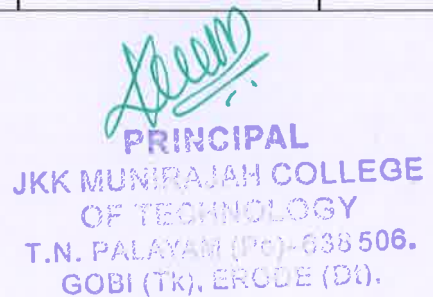 PRINCIPAL
JKK MUNIRAJAH COLLEGE
OF TECHNOLOGY
T.N. PALAYAM (Po)- 638 506.
GOBI (Tk), ERODE (Dt).